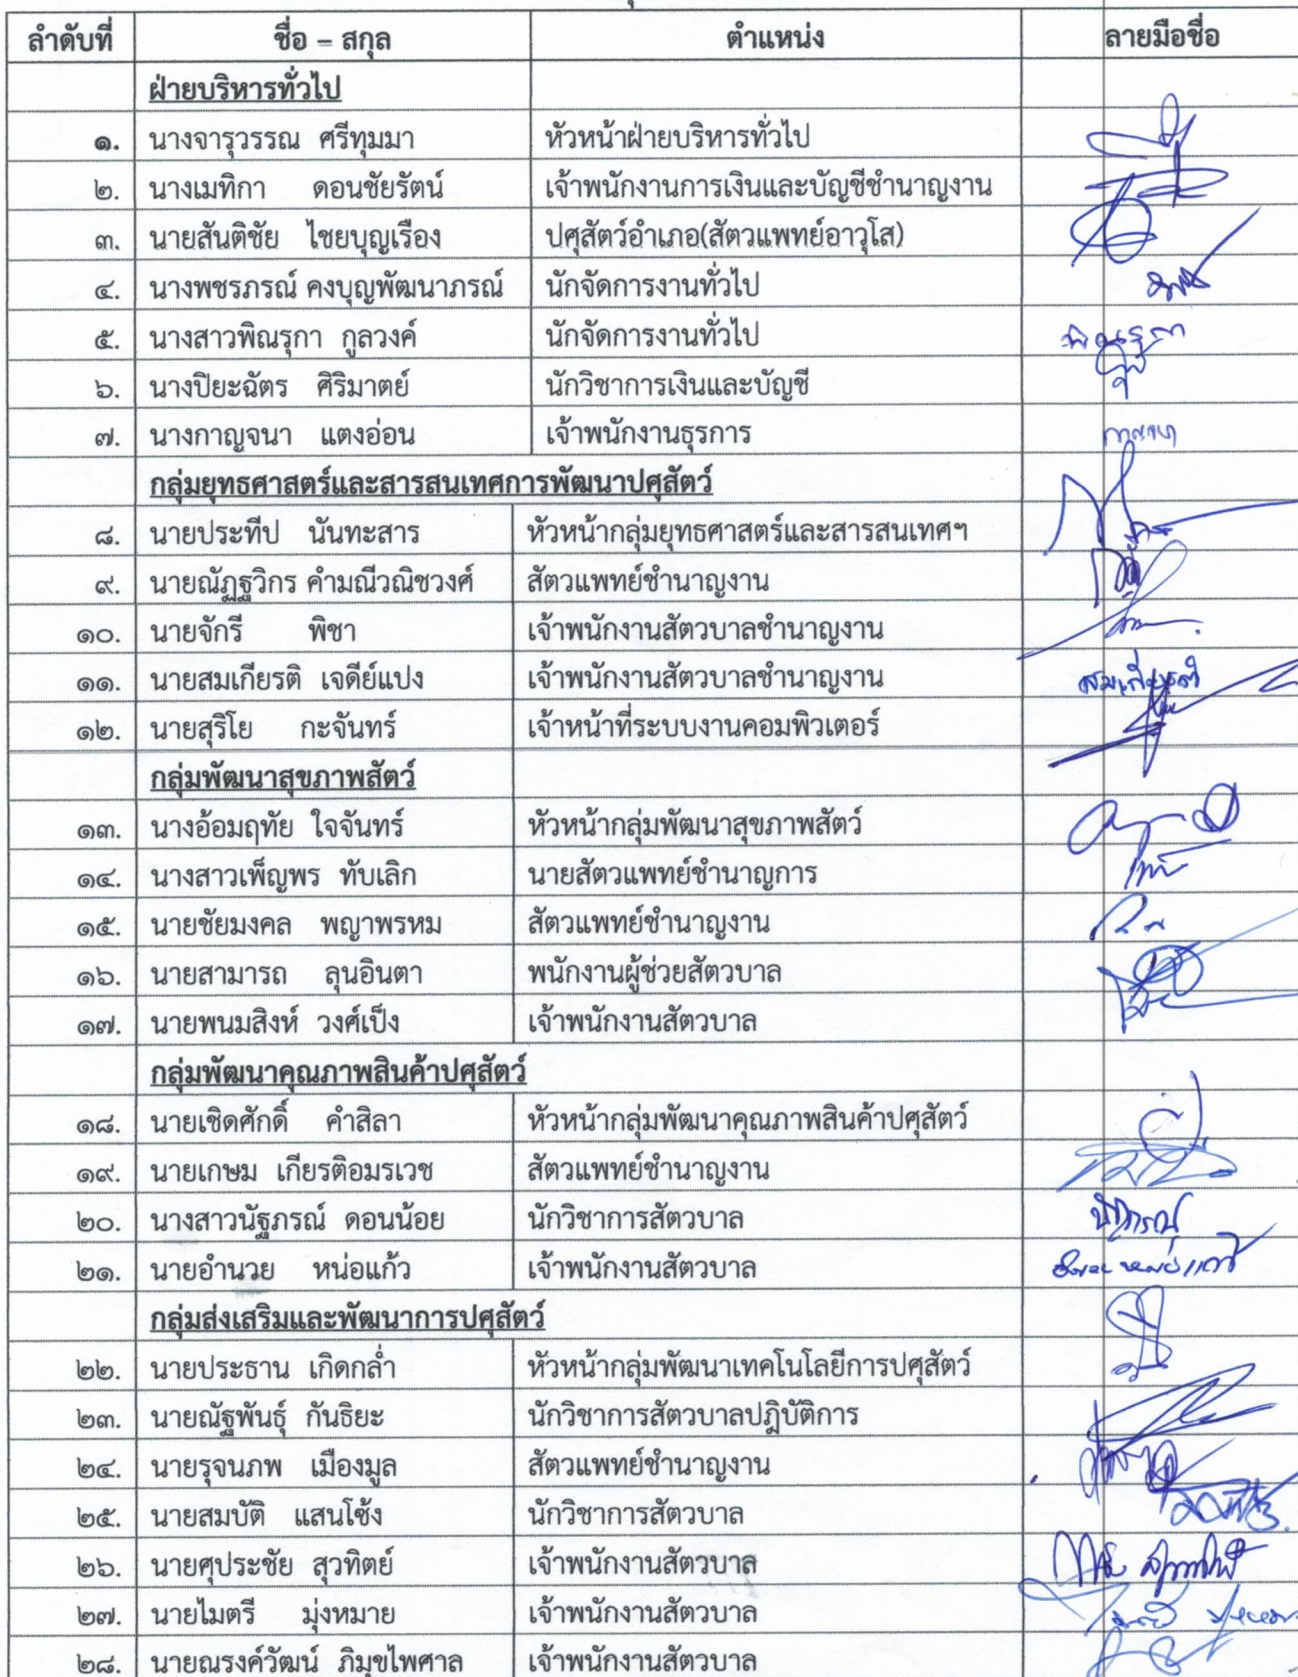 ลำดับที่ ชื่อ – สกุล ตำแหน่ง ลายมือชื่อ
ฝ่ายบริหารทั่วไป
๑. นางจารุวรรณ ศรีทุมมา หัวหน้าฝ่ายบริหารทั่วไป
๒. นางเมทิกา ดอนชัยรัตน์ เจ้าพนักงานการเงินและบัญชีชำนาญงาน
๓. นายสันติชัย ไชยบุญเรือง ปศุสัตว์อำเภอ(สัตวแพทย์อาวุโส)
๔. นางพชรภรณ์ คงบุญพัฒนาภรณ์ นักจัดการงานทั่วไป
๕. นางสาวพิณรุกา กูลวงค์ นักจัดการงานทั่วไป พิณรุกา
๖. นางปิยะฉัตร ศิริมาตย์ นักวิชาการเงินและบัญชี
๗. นางกาญจนา แตงอ่อน เจ้าพนักงานธุรการ กาญจนา
กลุ่มยุทธศาสตร์และสารสนเทศการพัฒนาปศุสัตว์
๘. นายประทีป นันทะสาร หัวหน้ากลุ่มยุทธศาสตร์และสารสนเทศฯ
๙. นายณัฏฐวิกร คำมณีวณิชวงศ์ สัตวแพทย์ชำนาญงาน
๑๐. นายจักรี พิชา เจ้าพนักงานสัตวบาลชำนาญงาน
๑๑. นายสมเกียรติ เจดีย์แปง เจ้าพนักงานสัตวบาลชำนาญงาน สมเกียรติ
๑๒. นายสุริโย กะจันทร์ เจ้าหน้าที่ระบบงานคอมพิวเตอร์
กลุ่มพัฒนาสุขภาพสัตว์
๑๓. นางอ้อมฤทัย ใจจันทร์ หัวหน้ากลุ่มพัฒนาสุขภาพสัตว์
๑๔. นางสาวเพ็ญพร ทับเลิก นายสัตวแพทย์ชำนาญการ
๑๕. นายชัยมงคล พญาพรหม สัตวแพทย์ชำนาญงาน
๑๖. นายสามารถ ลุนอินตา พนักงานผู้ช่วยสัตวบาล
๑๗. นายพนมสิงห์ วงศ์เป็ง เจ้าพนักงานสัตวบาล
กลุ่มพัฒนาคุณภาพสินค้าปศุสัตว์
๑๘. นายเชิดศักดิ์ คำสิลา หัวหน้ากลุ่มพัฒนาคุณภาพสินค้าปศุสัตว์
๑๙. นายเกษม เกียรติอมรเวช สัตวแพทย์ชำนาญงาน
๒๐. นางสาวนัฐภรณ์ ดอนน้อย นักวิชาการสัตวบาล นัฐภรณ์
๒๑. นายอำนวย หน่อแก้ว เจ้าพนักงานสัตวบาล อำนวย หน่อแก้ว
กลุ่มส่งเสริมและพัฒนาการปศุสัตว์
๒๒. นายประธาน เกิดกล่ำ หัวหน้ากลุ่มพัฒนาเทคโนโลยีการปศุสัตว์
๒๓. นายณัฐพันธุ์ กันธิยะ นักวิชาการสัตวบาลปฏิบัติการ
๒๔. นายรุจนภพ เมืองมูล สัตวแพทย์ชำนาญงาน
๒๕. นายสมบัติ แสนโซ้ง นักวิชาการสัตวบาล
๒๖. นายศุประชัย สุวทิตย์ เจ้าพนักงานสัตวบาล
๒๗. นายไมตรี มุ่งหมาย เจ้าพนักงานสัตวบาล
๒๘. นายณรงค์วัฒน์ ภิมุขไพศาล เจ้าพนักงานสัตวบาล